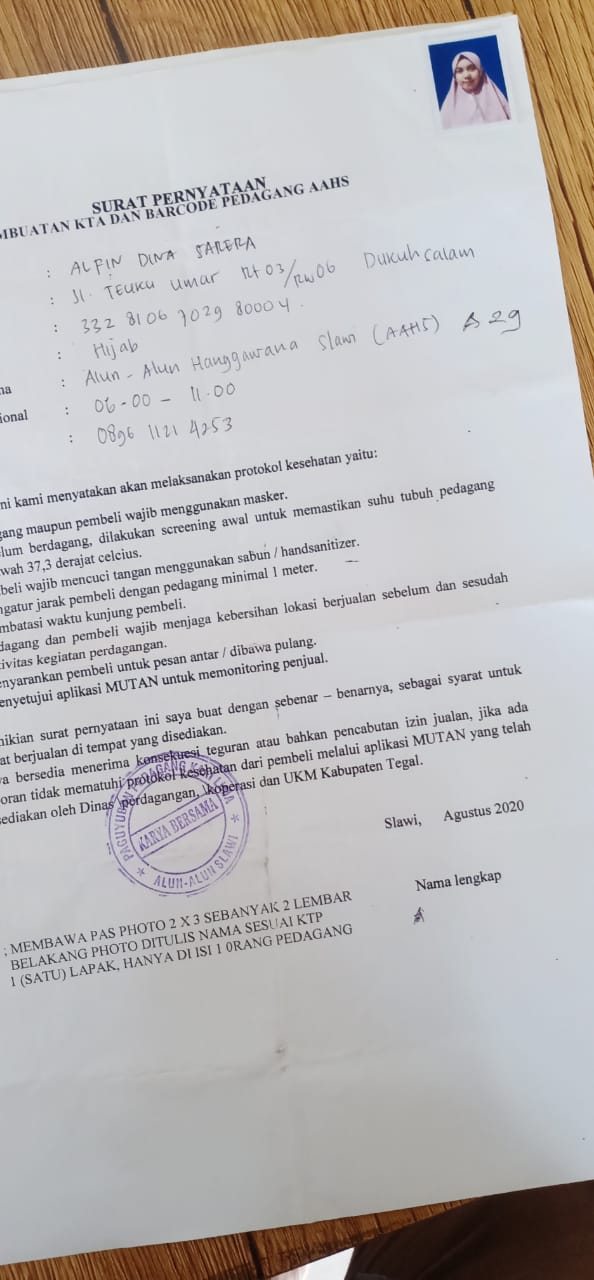 SURAT PERNYATAAN
MBUATAN KTA DAN BARCODE PEDAGANG AAHS
: ALFIN DINA SARERA
: Jl. Teuku Umar Rt 03/RW 06 Dukuhsalam
: 332 8106 7029 80004.
: Hijab
na : Alun-Alun Hanggawana Slawi (AAHS) A 29
ional : 06-00 - 11.00
: 0896 1121 4253
ni kami menyatakan akan melaksanakan protokol kesehatan yaitu:
gang maupun pembeli wajib menggunakan masker.
lum berdagang, dilakukan screening awal untuk memastikan suhu tubuh pedagang
wah 37,3 derajat celcius.
beli wajib mencuci tangan menggunakan sabun / handsanitizer.
ngatur jarak pembeli dengan pedagang minimal 1 meter.
mbatasi waktu kunjung pembeli.
dagang dan pembeli wajib menjaga kebersihan lokasi berjualan sebelum dan sesudah
tivitas kegiatan perdagangan.
enyarankan pembeli untuk pesan antar / dibawa pulang.
enyetujui aplikasi MUTAN untuk memonitoring penjual.
mikian surat pernyataan ini saya buat dengan sebenar – benarnya, sebagai syarat untuk
at berjualan di tempat yang disediakan.
ya bersedia menerima konsekuesi teguran atau bahkan pencabutan izin jualan, jika ada
oran tidak mematuhi protokol kesehatan dari pembeli melalui aplikasi MUTAN yang telah
sediakan oleh Dinas perdagangan, koperasi dan UKM Kabupaten Tegal.
PAGUYUBAN PEDAGANG KAKI LIMA
KARYA BERSAMA
* ALUN-ALUN SLAWI *
Slawi, Agustus 2020
Nama lengkap
; MEMBAWA PAS PHOTO 2 X 3 SEBANYAK 2 LEMBAR
BELAKANG PHOTO DITULIS NAMA SESUAI KTP
1 (SATU) LAPAK, HANYA DI ISI 1 0RANG PEDAGANG